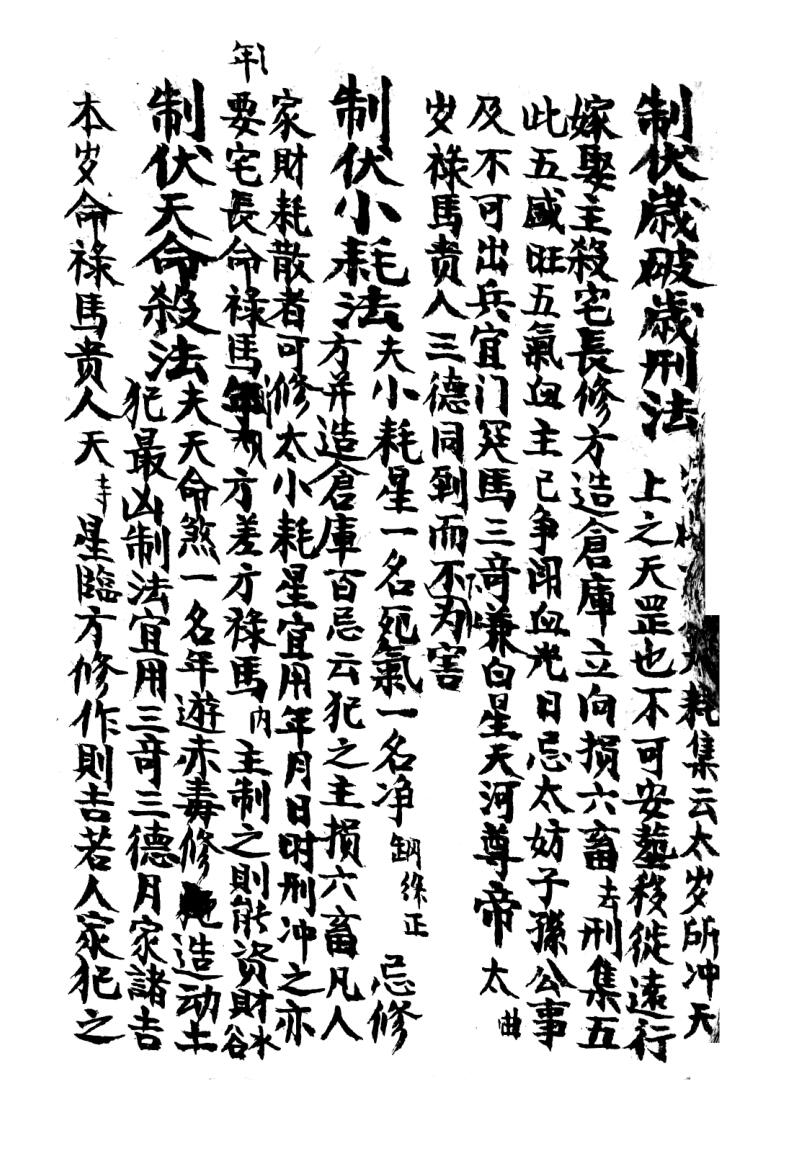 制伏歲破歲刑法
耗集云太岁所冲天
上之天罡也不可安葬移徙遠行
嫁娶主殺宅長修方造倉庫立向損六畜去刑集五
此五盛旺五氣血主己争闹血光日忌太妨子孫公事
及不可出兵宜门廷馬三奇兼白星天河尊帝太曲
岁禄馬贵人三德同到而不为害
制伏小耗法
夫小耗星一名死氣一名净缺綵正忌修
方并造倉庫百忌云犯之主損六畜凡人
家財耗散者可修太小耗星宜用年月日时刑冲之亦
年
要宅長命禄馬方差方禄馬内主制之則能资財水谷
制伏天命殺法
夫天命煞一名年遊赤毒修造动土
犯最凶制法宜用三奇三德月家諸吉
本岁命禄馬贵人天寺星臨方修作則吉若人家犯之